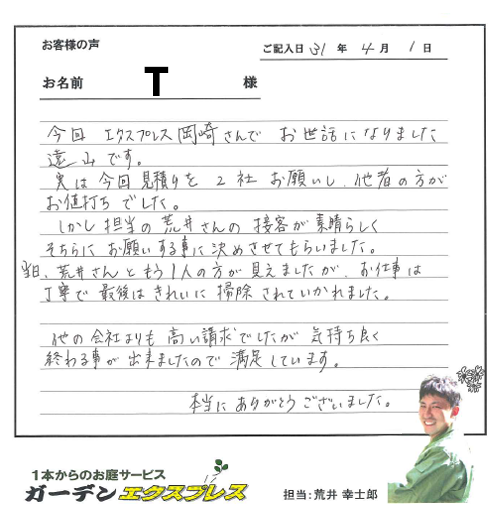 お客様の声
ご記入日 31 年 4 月 1 日
お名前 T 様
今回 エクスプレス岡崎さんで お世話になりました
遠山です。
実は今回見積りを 2社 お願いし、他者の方が
お値打ちでした。
しかし担当の荒井さんの 接客が素晴らしく
そちらに お願いする事に決めさせてもらいました。
当日、荒井さんともう1人の方が見えましたが、お仕事は
丁寧で 最後はきれいに 掃除 されていかれました。
他の会社よりも 高い請求でしたが 気持ち良く
終わる事が 出来ましたので 満足しています。
本当に ありがとうございました。
1本からのお庭サービス
ガーデンエクスプレス
担当:荒井 幸士郎